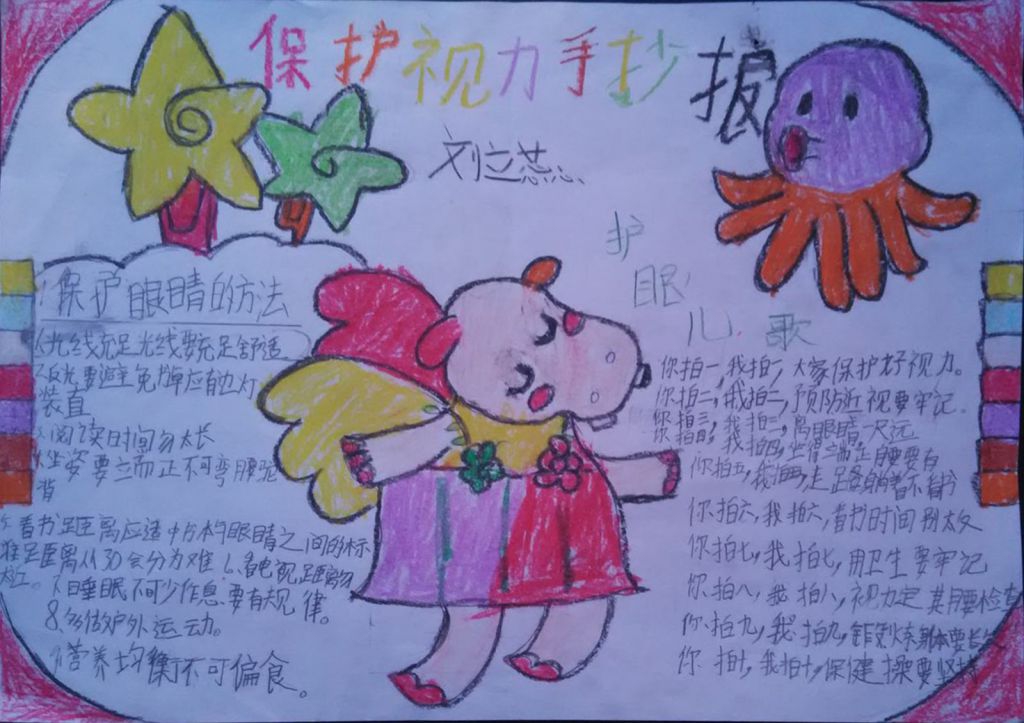 保护视力手抄报
刘立蕊
护眼儿歌
保护眼睛的方法
1、光线充足光线要充足舒适
2、反光要避免 应有边灯
装直
3、阅读时间勿太长
4、坐姿要端正不可弯腰驼
背
5、看书距离应适中书本与眼睛之间的标
准距离以30公分为难 6、看电视距离勿
太近。 7、睡眠不可少作息要有规律。
8、多做户外运动。
9、营养均衡不可偏食。
你拍一,我拍一,大家保护好视力。
你拍二,我拍二,预防近视要牢记.
你拍三,我拍三,离眼睛一尺远
你拍四,我拍四,坐得端正腰要直
你拍五,我拍五,走路乘车不看书
你拍六,我拍六,看书时间别太久
你拍七,我拍七,用卫生要牢记
你拍八,我拍八,视力定期腰检查
你拍九,我拍九,锻炼身体要长久
你拍十,我拍十,保健操要坚持